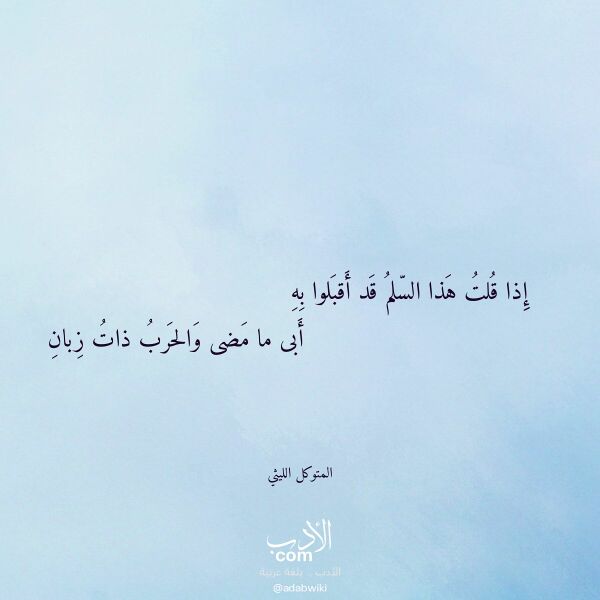 إِذا قُلتُ هَذا السّلمُ قَد أَقبَلوا بِهِ
أَبى ما مَضى وَالحَربُ ذاتُ زِبانِ
المتوكل الليثي
الأدب
com
الأدب .. بلغة عربية
@adabwiki